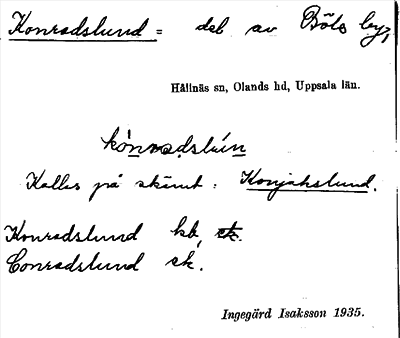 Konradslund = del av Böle by,
Hållnäs sn, Olands hd, Uppsala län.
kónradslùn
Kallas på skämt: Konjakslund.
Konradslund kb, sk.
Conradslund sk.
Ingegärd Isaksson 1935.